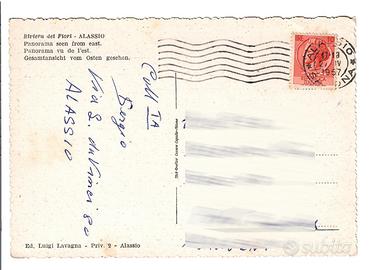 Riviera dei Fiori - ALASSIO
Panorama seen from east.
Panorama vu de l'est.
Gesamtansicht vom Osten gesehen.
Sergio
Via L. da Vinci 80
ALASSIO
Ed. Luigi Lavagna - Priv. 2 - Alassio
ALASSIO
1957
subito